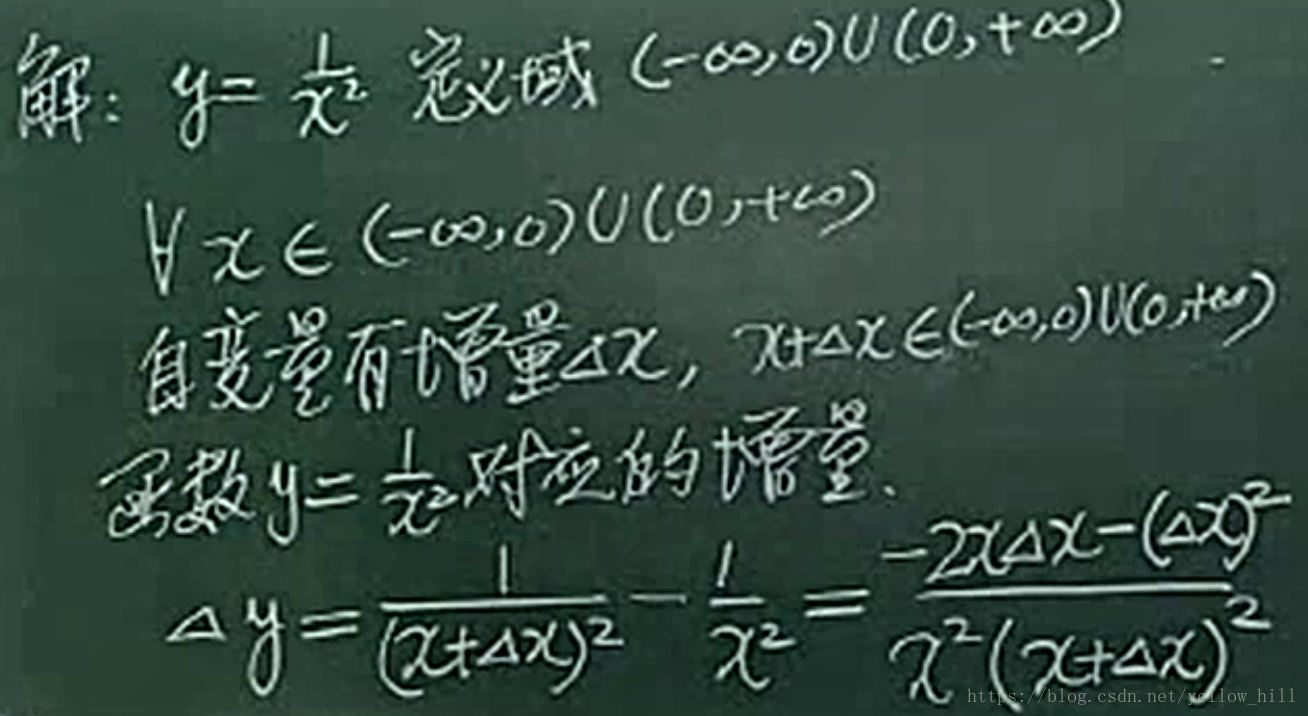 解: y = 1/x² 定义域 (-∞,0)∪(0,+∞)
∀x∈(-∞,0)∪(0,+∞)
自变量有增量Δx, x+Δx∈(-∞,0)∪(0,+∞)
函数y=1/x²对应的增量.
Δy = 1/(x+Δx)² - 1/x² = (-2xΔx-(Δx)²)/(x²(x+Δx)²)
https://blog.csdn.net/yellow_hill